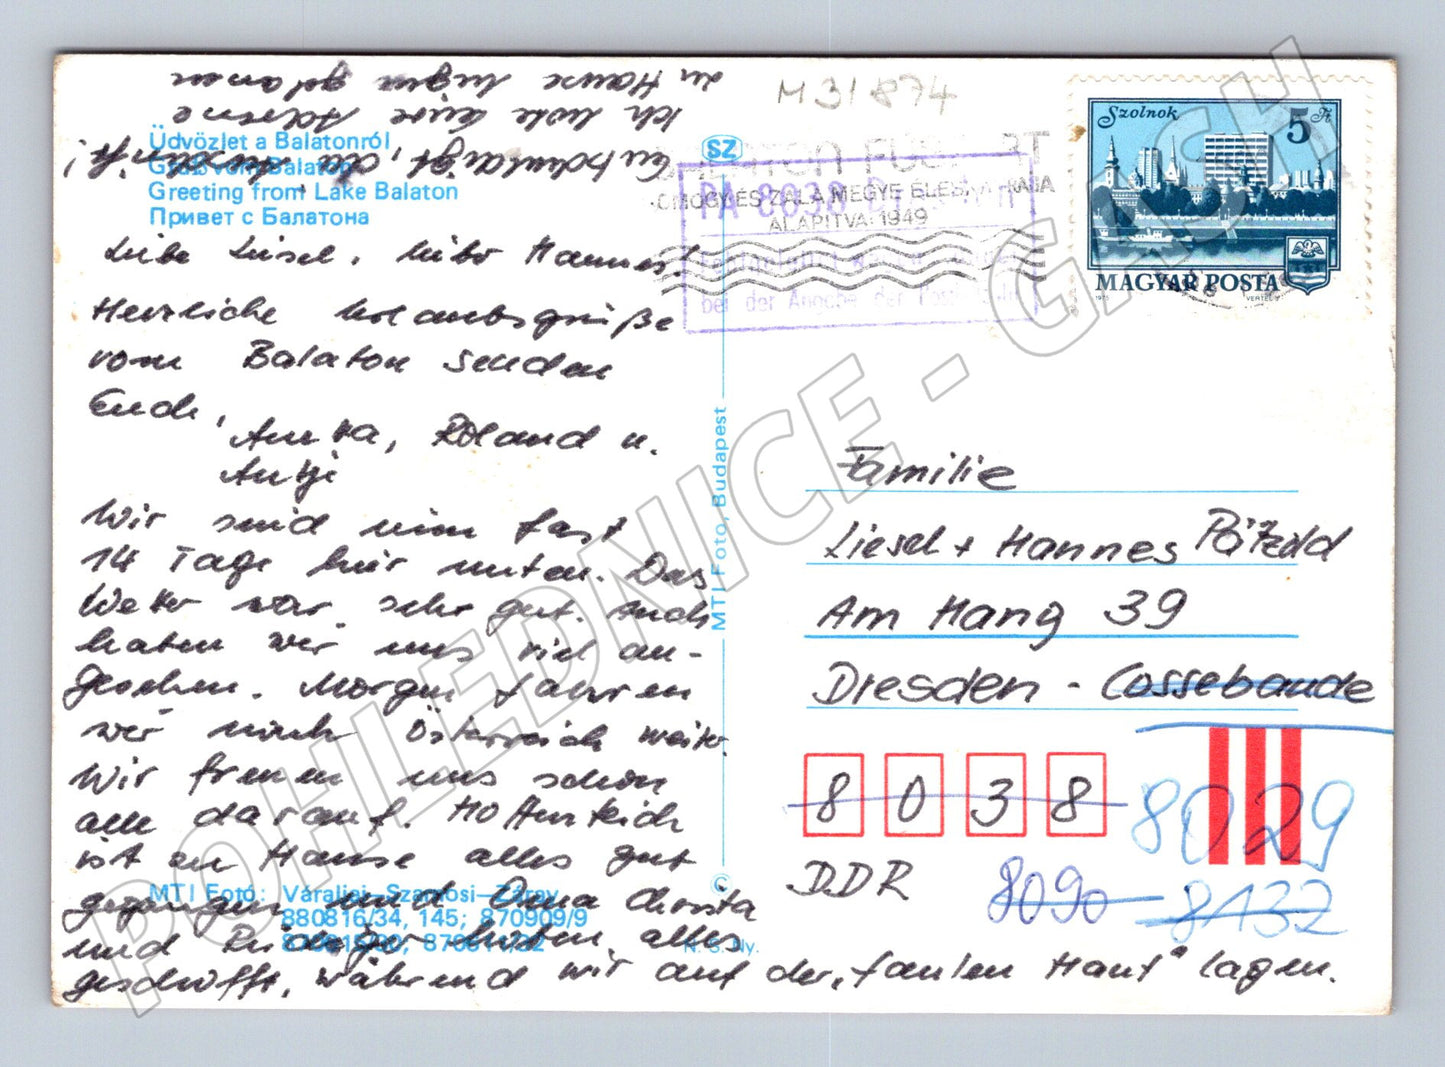 Ich habe Eure Adresse
zu Hause liegen gelassen
Entschuldigt,
M31874
Üdvözlet a Balatonról
Gruß vom Balaton
Greeting from Lake Balaton
Привет с Балатона
SZ
BALATON FÜ
SOMOGY ÉS ZALA MEGYE
ALAPITVA 1949
PA 8038
bei der Angabe der Postleitz
Szolnok 5 Ft
MAGYAR POSTA
1975 VERTEL
Liebe Liesel, lieber Hannes!
Herzliche Urlaubsgrüße
vom Balaton senden
Euch,
Anita, Roland u.
Antje
Wir sind nun fast
14 Tage hier unten. Das
Wetter war sehr gut. Auch
haben wir uns viel an-
gesehen. Morgen fahren
wir nach Österreich weiter.
Wir freuen uns schon
alle darauf. Hoffentlich
ist zu Hause alles gut
gegangen und Oma
und haben alles
geschafft, während wir auf der „faulen Haut" lagen.
MTI Fotó: Váraljai–Szamosi–Záray
880816/34, 145; 870909/9
MTI Foto, Budapest
©
N. S. Ny.
Familie
Liesel + Hannes Pätzold
Am Hang 39
Dresden - Cossebaude
8 0 3 8
8029
DDR
8090
8132
POHLEDNICE - GASH